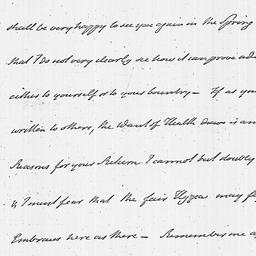 shall be very happy to see you again in the Spring
that I do not very clearly see how it can prove adv
either to yourself or to your Country — If as you
written to others, the Want of Health draws is am
Reasons for your Return I cannot but doubly
& I must fear that the fair Hygea may fl
Embraces here as there — Remember me a